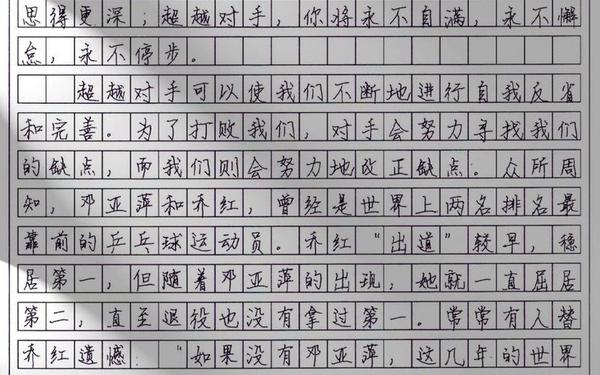 思得更深；超越对手，你将永不自满，永不懈
怠，永不停步。
超越对手可以使我们不断地进行自我反省
和完善。为了打败我们，对手会努力寻找我们
的缺点，而我们则会努力地改正缺点。众所周
知，邓亚萍和乔红，曾经是世界上两名排名最
靠前的乒乓球运动员。乔红“出道”较早，稳
居第一，但随着邓亚萍的出现，她就一直屈居
第二，直至退役也没有拿过第一。常常有人替
乔红遗憾：“如果没有邓亚萍，这几年的世界